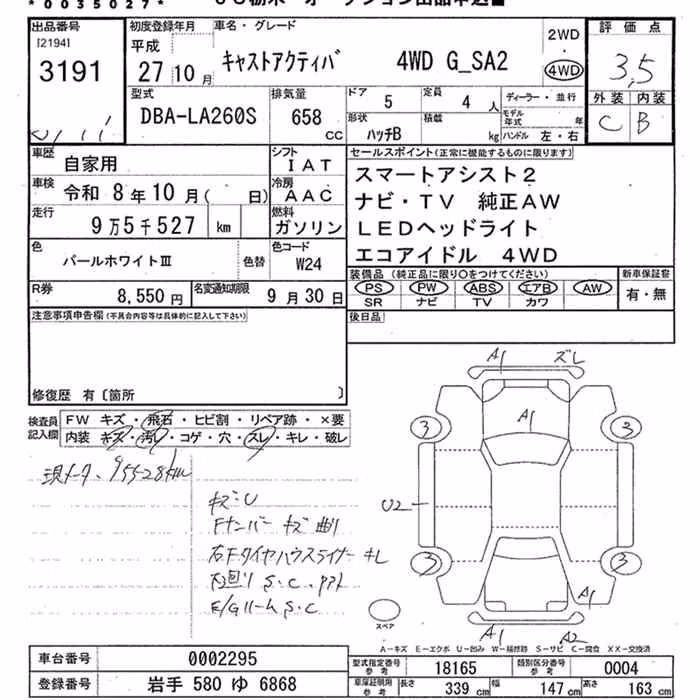 *0035027*
出品番号
[2194]
3191
初度登録年月
平成
27 10 月
車名・グレード
キャストアクティバ 4WD G_SA2
2WD
4WD
評価点
3.5
外装 内装
C B
型式
DBA-LA260S
排気量
658 CC
ドア 5
定員 4 人
形状 ハッチB
積載 kg
ディーラー・並行
モデル年式 年
ハンドル 左・右
車歴 自家用
シフト IAT
車検 令和 8年10月( 日)
冷房 AAC
走行 9万5千527 km
燃料 ガソリン
色 パールホワイトⅢ 色替
色コード W24
R券 8,550円
名変通知期限 9月30日
セールスポイント(正常に機能するものに限ります)
スマートアシスト2
ナビ・TV 純正AW
LEDヘッドライト
エコアイドル 4WD
装備品 (純正品に限り○をつけてください)
PS PW ABS エアB AW
SR ナビ TV カワ
新車保証書
有・無
後日品
注意事項申告欄(不具合内容等は具体的に記入して下さい)
修復歴 有〔箇所 〕
検査員記入欄
FW キズ・飛石・ヒビ割・リペア跡・×要
内装 キズ・汚レ・コゲ・穴・スレ・キレ・破レ
現メータ、95528km
キズ・U
Fナンバー キズ 曲リ
右FタイヤハウスライナーキL
下回り S.C.
E/Gルーム S.C
A1 ズレ
A1
3 3
U2
3 3
A1
A1 A2
スペア
A－キズ E－エクボ U－凹み W－補修跡 S－サビ C－腐食 XX－交換済
車台番号 0002295
登録番号 岩手 580 ゆ 6868
型式指定番号 参考 18165
類別区分番号 参考 0004
車庫証明用 参考 長さ 339 cm 幅 147 cm 高さ 163 cm